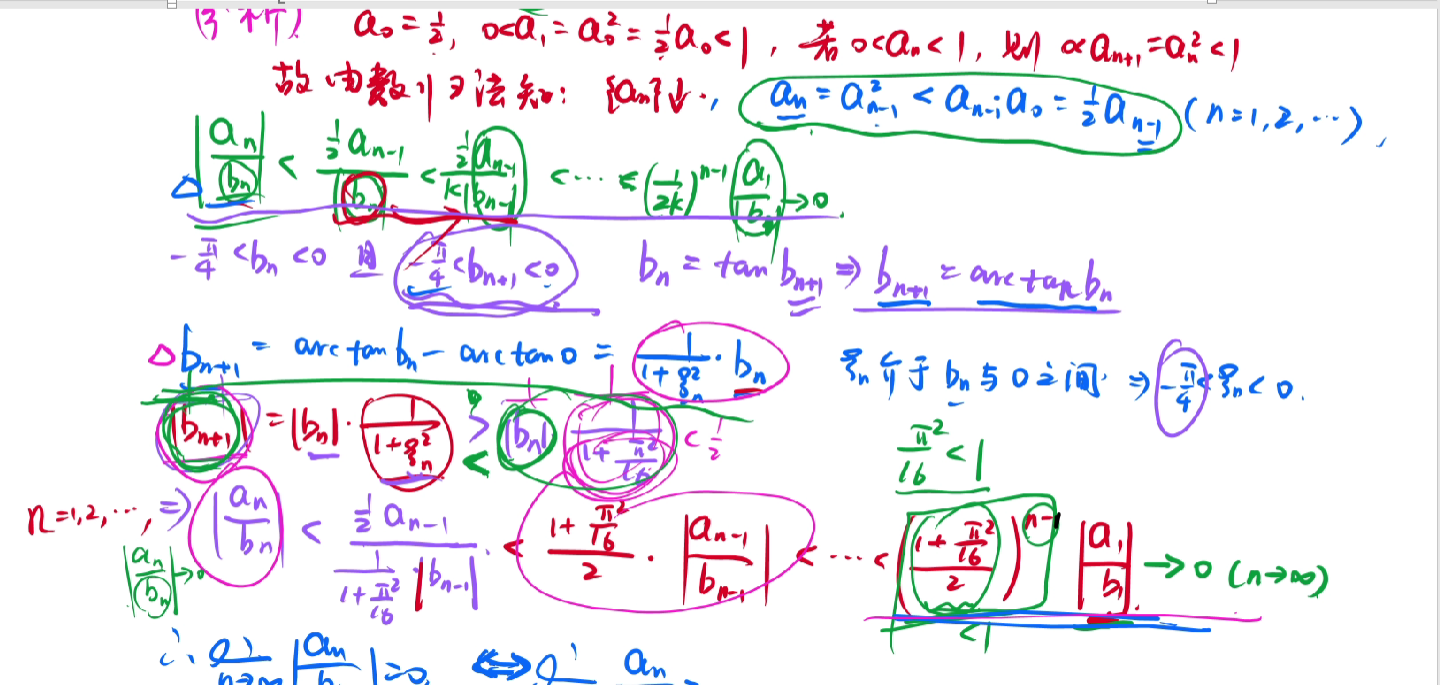 (3) a₀ = 1/2, 0<a₁ = a₀² = 1/2 a₀ < 1, 若 0<aₙ<1, 则 0<aₙ₊₁ = aₙ² < 1
故由数归法知: {aₙ}↓, aₙ = a²ₙ₋₁ < aₙ₋₁a₀ = 1/2 aₙ₋₁ (n=1,2,…),
△ |aₙ/bₙ| < (1/2 aₙ₋₁)/|bₙ| < (1/2 aₙ₋₁)/(k|bₙ₋₁|) < … < (1/2k)ⁿ⁻¹ |a₁/b₁| → 0.
-π/4 < bₙ < 0 且 -π/4 < bₙ₊₁ < 0 bₙ = tan bₙ₊₁ ⇒ bₙ₊₁ = arctan bₙ
△ bₙ₊₁ = arctan bₙ - arctan 0 = 1/(1+ξₙ²) · bₙ ξₙ介于 bₙ 与 0 之间 ⇒ -π/4 < ξₙ < 0.
|bₙ₊₁| = |bₙ| · 1/(1+ξₙ²) > |bₙ| 1/(1+π²/16) < 1/2
<
π²/16 < 1
n=1,2,…, ⇒ |aₙ/bₙ| < (1/2 aₙ₋₁)/(1/(1+π²/16) |bₙ₋₁|) < (1+π²/16)/2 · |aₙ₋₁/bₙ₋₁| < … < ((1+π²/16)/2)ⁿ⁻¹ |a₁/b₁| → 0 (n→∞)
|aₙ/bₙ| → 0
<1
∴ |aₙ/b | = 0 ⇔ aₙ